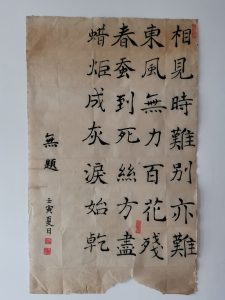 相見時難別亦難
東風無力百花殘
春蚕到死絲方盡
蜡炬成灰淚始乾
無題
壬寅夏日